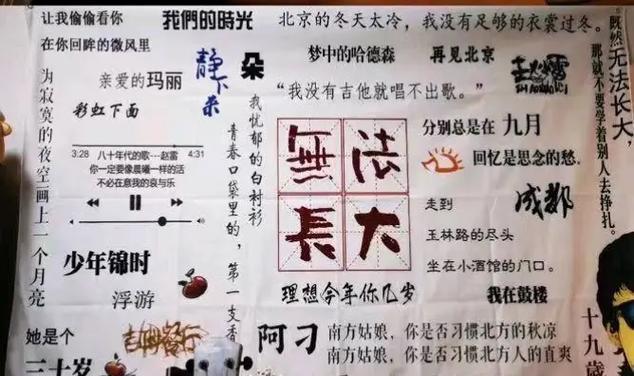 让我偷偷看你
在你回眸的微风里
我們的時光
北京的冬天太冷，我没有足够的衣裳过冬。
静下来
朵
梦中的哈德森
再见北京
赵雷
“我没有吉他就唱不出歌。”
既然无法长大，
那就不要学着别人去挣扎。
为寂寞的夜空画上一个月亮
亲爱的玛丽
彩虹下面
3:28 八十年代的歌---赵雷 4:31
你一定要像晨曦一样的活
不必在意我的哀与乐
我忧郁的白衬衫
青春口袋里的，第一支香
無法
長大
分别总是在 九月
回忆是思念的愁。
走到 成都
玉林路的尽头
坐在小酒馆的门口。
少年锦时
浮游
理想今年你几岁
我在鼓楼
她是个
三十岁
吉姆餐厅
阿刁
南方姑娘，你是否习惯北方的秋凉
南方姑娘，你是否习惯北方人的直爽
十九歲